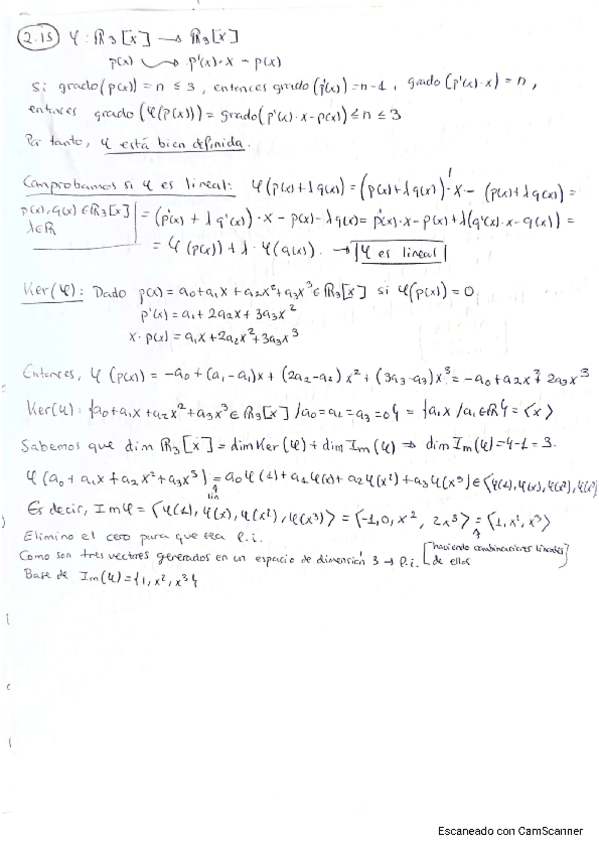 2.15 φ : ℝ₃[x] → ℝ₃[x]
p(x) ⟿ p'(x)·x − p(x)
Si grado(p(x)) = n ≤ 3, entonces grado(p'(x)) = n−1, grado(p'(x)·x) = n,
entonces grado(φ(p(x))) = grado(p'(x)·x − p(x)) ≤ n ≤ 3
Por tanto, φ está bien definida.
Comprobamos si φ es lineal: φ(p(x)+λq(x)) = (p(x)+λq(x))'·x − (p(x)+λq(x)) =
p(x), q(x) ∈ ℝ₃[x] = (p'(x) + λq'(x))·x − p(x) − λq(x) = p'(x)·x − p(x) + λ(q'(x)·x − q(x)) =
λ ∈ ℝ
= φ(p(x)) + λ·φ(q(x)). → φ es lineal
Ker(φ): Dado p(x) = a₀+a₁x+a₂x²+a₃x³ ∈ ℝ₃[x] si φ(p(x)) = 0
p'(x) = a₁ + 2a₂x + 3a₃x²
x·p(x) = a₁x + 2a₂x² + 3a₃x³
Entonces, φ(p(x)) = −a₀ + (a₁−a₁)x + (2a₂−a₂)x² + (3a₃−a₃)x³ = −a₀ + a₂x² + 2a₃x³
Ker(φ): {a₀+a₁x+a₂x²+a₃x³ ∈ ℝ₃[x] / a₀=a₂=a₃=0} = {a₁x / a₁∈ℝ} = ⟨x⟩
Sabemos que dim ℝ₃[x] = dim Ker(φ) + dim Im(φ) ⇒ dim Im(φ) = 4−1 = 3.
φ(a₀ + a₁x + a₂x² + a₃x³) = a₀φ(1) + a₁φ(x) + a₂φ(x²) + a₃φ(x³) ∈ ⟨φ(1), φ(x), φ(x²), φ(x³)⟩
lin
Es decir, Imφ = ⟨φ(1), φ(x), φ(x²), φ(x³)⟩ = ⟨−1, 0, x², 2x³⟩ = ⟨1, x², x³⟩
Elimino el cero para que sea l.i.
Como son tres vectores generados en un espacio de dimensión 3 → l.i. [haciendo combinaciones lineales
de ellos]
Base de Im(φ) = {1, x², x³}
Escaneado con CamScanner